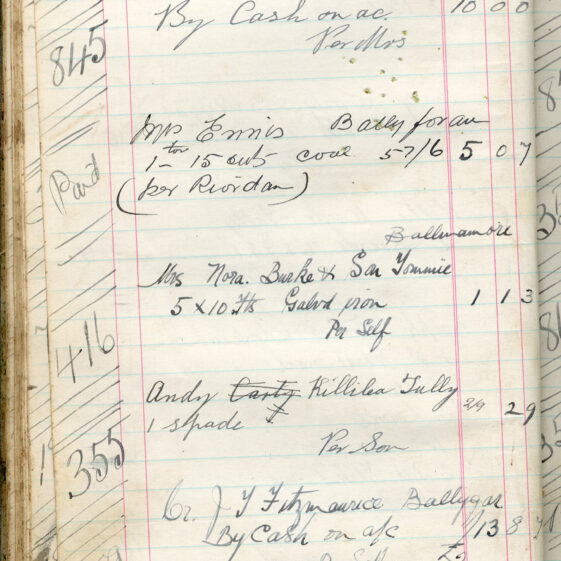 By Cash on ac. 10 0 0
Per Mrs
845
Mrs Ennis Ballyforan
1 ton 15 cwts coal 57/6 5 0 7
Paid
(per Riordan)
Ballinamore
Mrs Nora. Burke & Son Tommie
5 x 10 fts Galvd iron 1 1 3
Per Self
416
Andy Carty Killilea Tully
1 spade 2/9 2 9
Per Son
355
Cr. J T Fitzmaurice Ballygar
By Cash on a/c 13 8